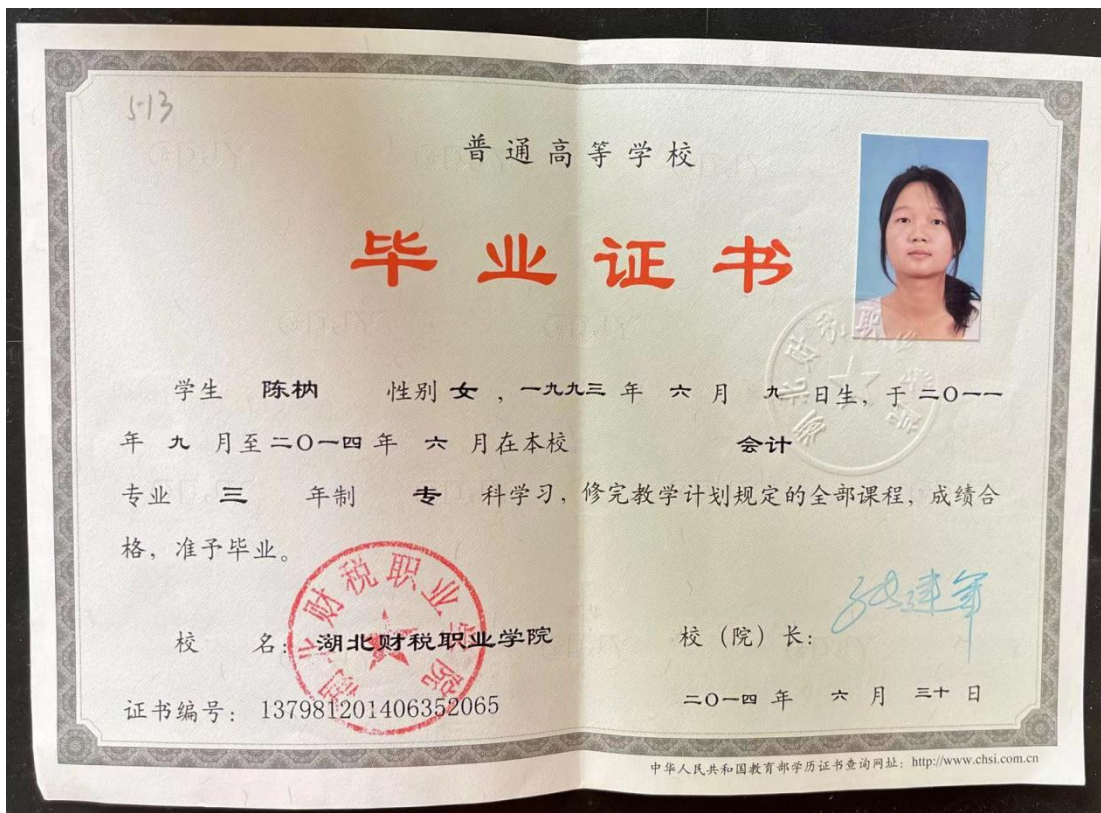 5-13
普通高等学校
毕业证书
学生 陈枘 性别 女 ，一九九三 年 六 月 九 日生，于 二〇一一
年 九 月至 二〇一四 年 六 月在本校 会计
专业 三 年制 专 科学习，修完教学计划规定的全部课程，成绩合
格，准予毕业。
湖北财税职业学院
校 名：湖北财税职业学院 校（院）长：
证书编号：137981201406352065 二〇一四 年 六 月 三十 日
中华人民共和国教育部学历证书查询网址：http://www.chsi.com.cn